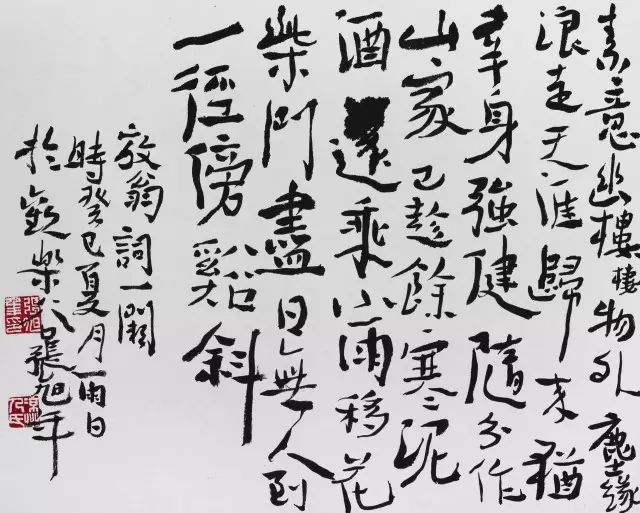 素意幽樓棲物外塵緣
浪走天涯歸来猶
幸身強健隨分作
山家已趁餘寒泥
酒還乘小雨移花
柴門盡日無人到
一徑傍谿斜
放翁詞一闋
時癸巳夏月雨日
於柴張旭年